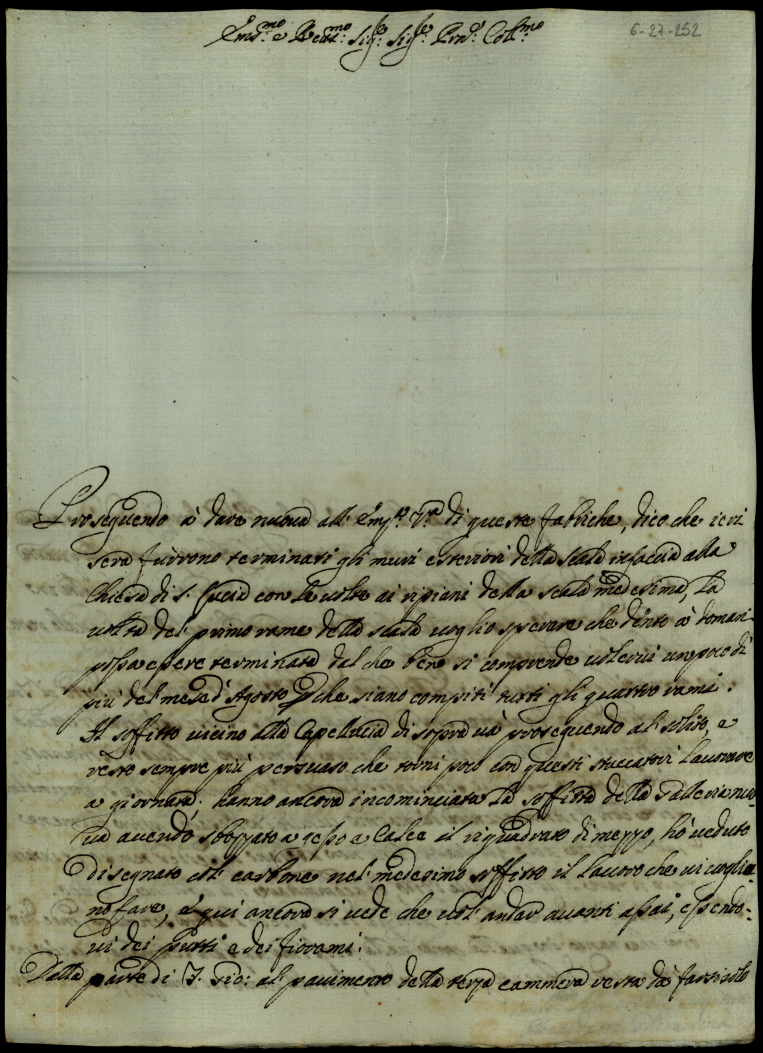 Em.mo e Rev.mo Sig.r Sig.r Pron. Col.mo
6-27-252
Proseguendo à dare nuova all' Em.za V.ra di queste fabriche, dico che ieri
sera furono terminati gli muri esteriori della scala in faccia alla
Chiesa di S. Lucia con le volte ai ripiani della scala medesima, la
volta del primo ramo della scala voglio sperare che dentro à domani
possa essere terminata dal che bene si comprende volervi un poco di
più del mese d'Agosto perche siano compiti tutti gli quattro rami.
Il soffitto vicino alla Capelluccia di sopra và proseguendo al solito, e
resto sempre più persuaso che torni poco con questi stuccatori lavorare
a giornata; hanno ancora incominciata la soffitta della Galleria nuo-
va avendo sbozzato a gesso e calce il riquadrato di mezzo, hò veduto
disegnato col carbone nel medesimo soffitto il lavoro che vi voglia-
no fare, e qui ancora si vede che vol andar avanti assai, essendo-
vi dei putti e dei fiorami.
Dalla parte di S. Gio: al pavimento della terza cammera resta da farsi solo